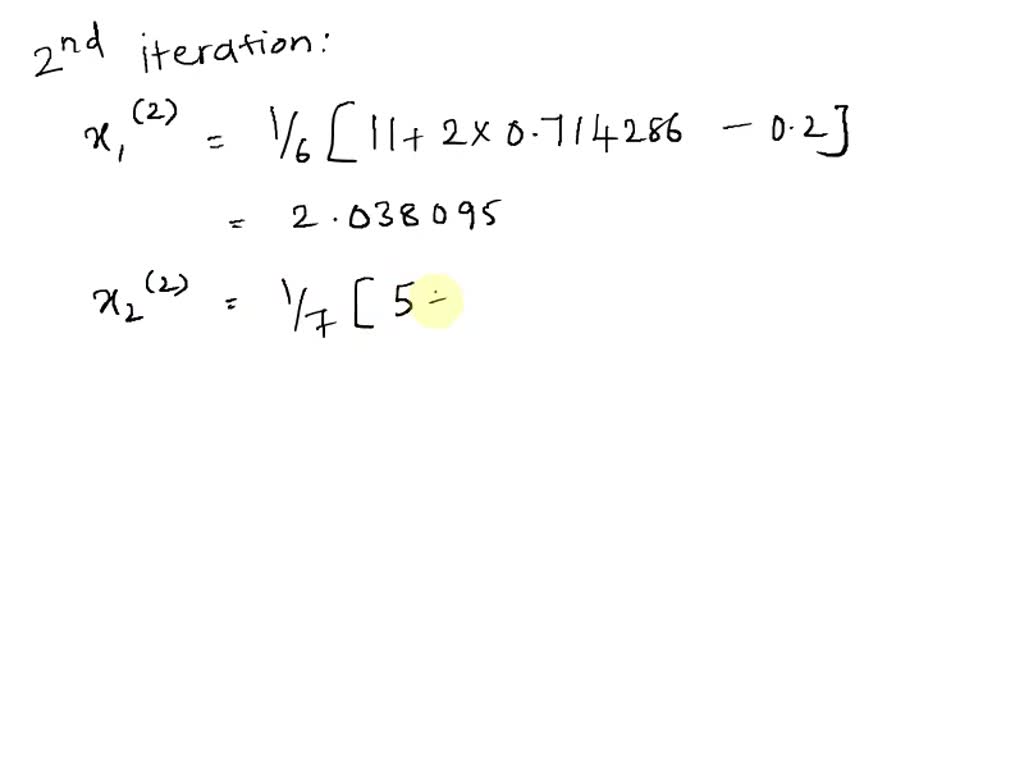 2nd iteration:
x₁⁽²⁾ = 1/6 [11 + 2 × 0.714286 - 0.2]
= 2.038095
x₂⁽²⁾ = 1/7 [ 5 ÷